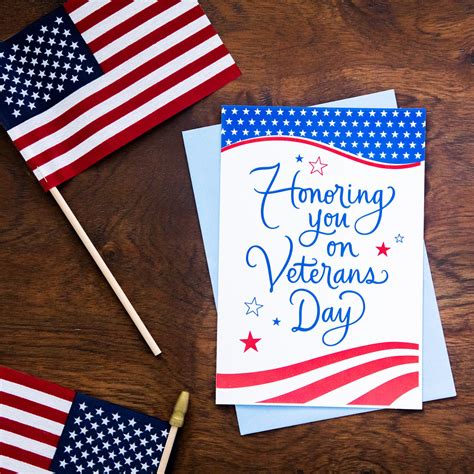 Honoring
you
on
Veterans
Day